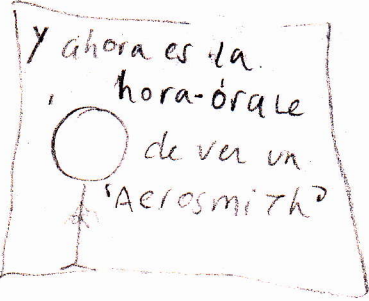 y ahora es la
hora-órale
de ver un
'Aerosmith'